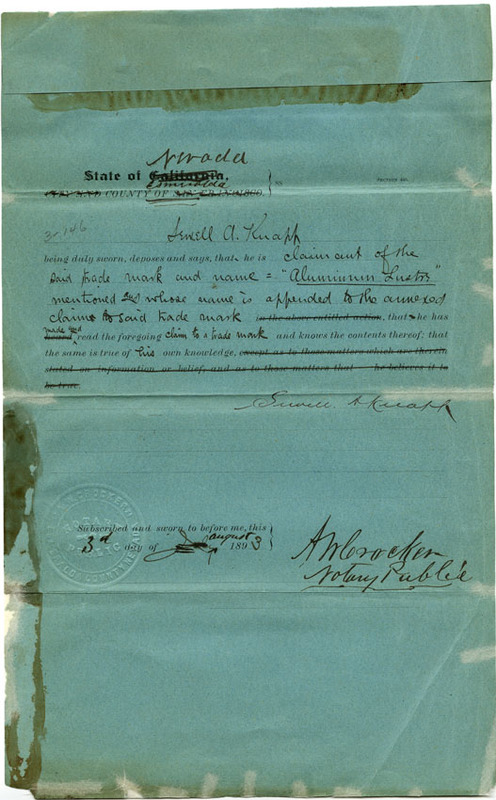 Nevada
State of California,
Esmeralda
CITY AND COUNTY OF SAN FRANCISCO. } ss.
3-146
Sewell A. Knapp
being duly sworn, deposes and says, that he is claimant of the
said trade mark and name = "Aluminum Lustre"
mentioned and whose name is appended to the annexed
claim to said trade mark in the above entitled action, that he has
made and
heard read the foregoing claim to a trade mark and knows the contents thereof; that
the same is true of his own knowledge, except as to those matters which are therein
stated on information or belief, and as to those matters that he believes it to
be true.
Sewell A Knapp
Subscribed and sworn to before me, this
3d day of August 1893 }
A W Crocker
Notary Public